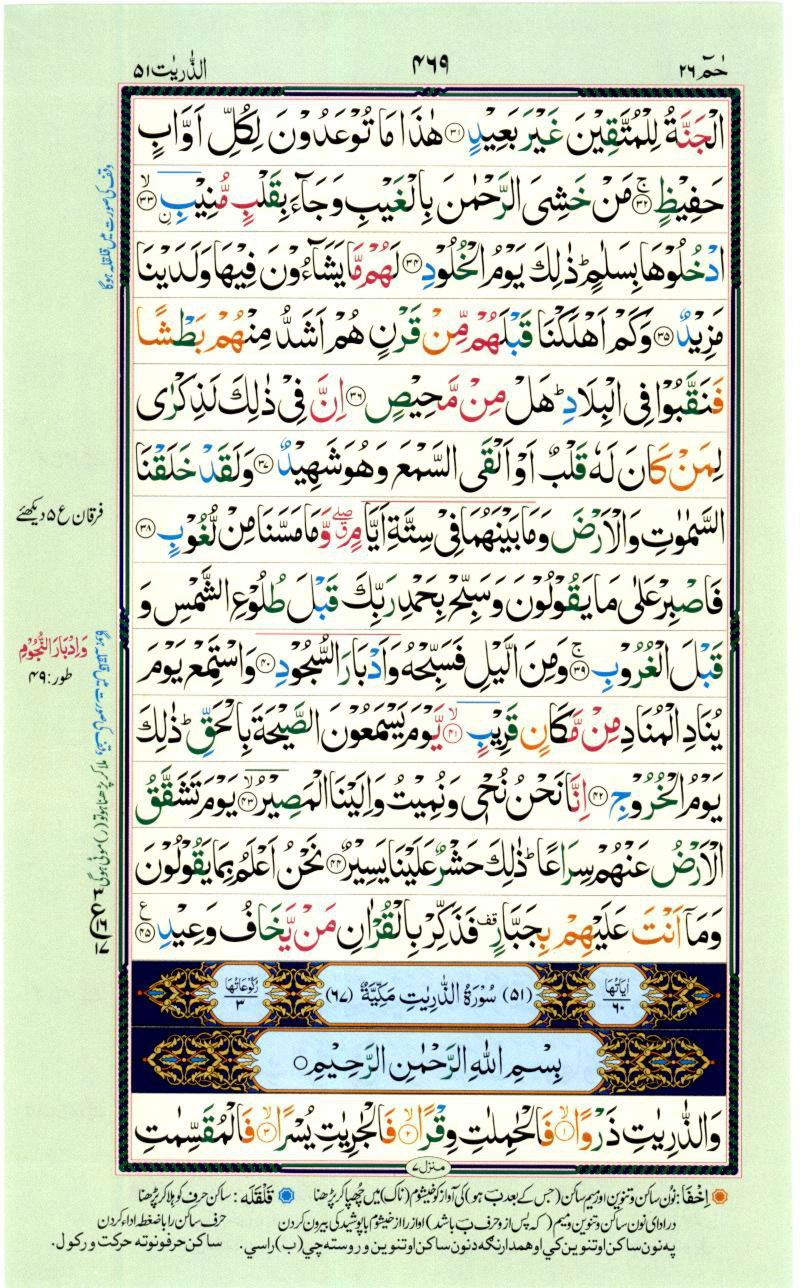 حٰمٓ ٢٦
۴۶۹
الذّٰرِیٰت ۵۱
الْجَنَّةُ لِلْمُتَّقِیْنَ غَیْرَ بَعِیْدٍ ﴿۳۱﴾ هٰذَا مَا تُوْعَدُوْنَ لِكُلِّ اَوَّابٍ
حَفِیْظٍ ۚ﴿۳۲﴾ مَنْ خَشِیَ الرَّحْمٰنَ بِالْغَیْبِ وَ جَآءَ بِقَلْبٍ مُّنِیْبِ ۙ﴿۳۳﴾
ادْخُلُوْهَا بِسَلٰمٍ ؕ ذٰلِكَ یَوْمُ الْخُلُوْدِ ﴿۳۴﴾ لَهُمْ مَّا یَشَآءُوْنَ فِیْهَا وَ لَدَیْنَا
مَزِیْدٌ ﴿۳۵﴾ وَ كَمْ اَهْلَكْنَا قَبْلَهُمْ مِّنْ قَرْنٍ هُمْ اَشَدُّ مِنْهُمْ بَطْشًا
فَنَقَّبُوْا فِی الْبِلَادِ ؕ هَلْ مِنْ مَّحِیْصٍ ﴿۳۶﴾ اِنَّ فِیْ ذٰلِكَ لَذِكْرٰی
لِمَنْ كَانَ لَهٗ قَلْبٌ اَوْ اَلْقَی السَّمْعَ وَ هُوَ شَهِیْدٌ ﴿۳۷﴾ وَ لَقَدْ خَلَقْنَا
السَّمٰوٰتِ وَ الْاَرْضَ وَ مَا بَیْنَهُمَا فِیْ سِتَّةِ اَیَّامٍ ۖق وَّ مَا مَسَّنَا مِنْ لُّغُوْبٍ ﴿۳۸﴾
فَاصْبِرْ عَلٰی مَا یَقُوْلُوْنَ وَ سَبِّحْ بِحَمْدِ رَبِّكَ قَبْلَ طُلُوْعِ الشَّمْسِ وَ
قَبْلَ الْغُرُوْبِ ۚ﴿۳۹﴾ وَ مِنَ الَّیْلِ فَسَبِّحْهُ وَ اَدْبَارَ السُّجُوْدِ ﴿۴۰﴾ وَ اسْتَمِعْ یَوْمَ
یُنَادِ الْمُنَادِ مِنْ مَّكَانٍ قَرِیْبٍ ۙ﴿۴۱﴾ یَّوْمَ یَسْمَعُوْنَ الصَّیْحَةَ بِالْحَقِّ ؕ ذٰلِكَ
یَوْمُ الْخُرُوْجِ ﴿۴۲﴾ اِنَّا نَحْنُ نُحْیٖ وَ نُمِیْتُ وَ اِلَیْنَا الْمَصِیْرُ ۙ﴿۴۳﴾ یَوْمَ تَشَقَّقُ
الْاَرْضُ عَنْهُمْ سِرَاعًا ؕ ذٰلِكَ حَشْرٌ عَلَیْنَا یَسِیْرٌ ﴿۴۴﴾ نَحْنُ اَعْلَمُ بِمَا یَقُوْلُوْنَ
وَ مَاۤ اَنْتَ عَلَیْهِمْ بِجَبَّارٍ قف فَذَكِّرْ بِالْقُرْاٰنِ مَنْ یَّخَافُ وَعِیْدِ ﴿۴۵﴾ ع
اٰیَاتُهَا ٦٠
(۵۱) سُوْرَةُ الذّٰرِیٰتِ مَكِّیَّةٌ (٦۷)
رُكُوْعَاتُهَا ۳
بِسْمِ اللّٰهِ الرَّحْمٰنِ الرَّحِیْمِ
وَ الذّٰرِیٰتِ ذَرْوًا ۙ﴿۱﴾ فَالْحٰمِلٰتِ وِقْرًا ۙ﴿۲﴾ فَالْجٰرِیٰتِ یُسْرًا ۙ﴿۳﴾ فَالْمُقَسِّمٰتِ
منزل ۷
وقف کی صورت میں قلقلہ ہوگا
فرقان ع ۵ دیکھئے
وَاِدْبَارَ النُّجُوْمِ
طور: ۴۹
وقف کی صورت میں قلقلہ ہوگا
ملا کر پڑھنا ہو تو (ر) موٹی ہوگی
اِخْفَا: نُون ساکن و تنوین اور میم ساکن (جس کے بعد ب ہو) کی آواز کو خیشوم (ناک) میں چُھپا کر پڑھنا
قَلْقَلَه: ساکن حرف کو ہلا کر پڑھنا
در ادای نون ساکن و تنوین و میم (که پس از و حرف ب باشد) اواز را از خیشوم با پوشیدگی بیرون کردن
حرف ساکن را با ضغطه اداء کردن
په نون ساکن او تنوین کي او همدارنگه د نون ساکن او تنوین وروسته چي (ب) راسي.
ساکن حرفونو ته حرکت ورکول.